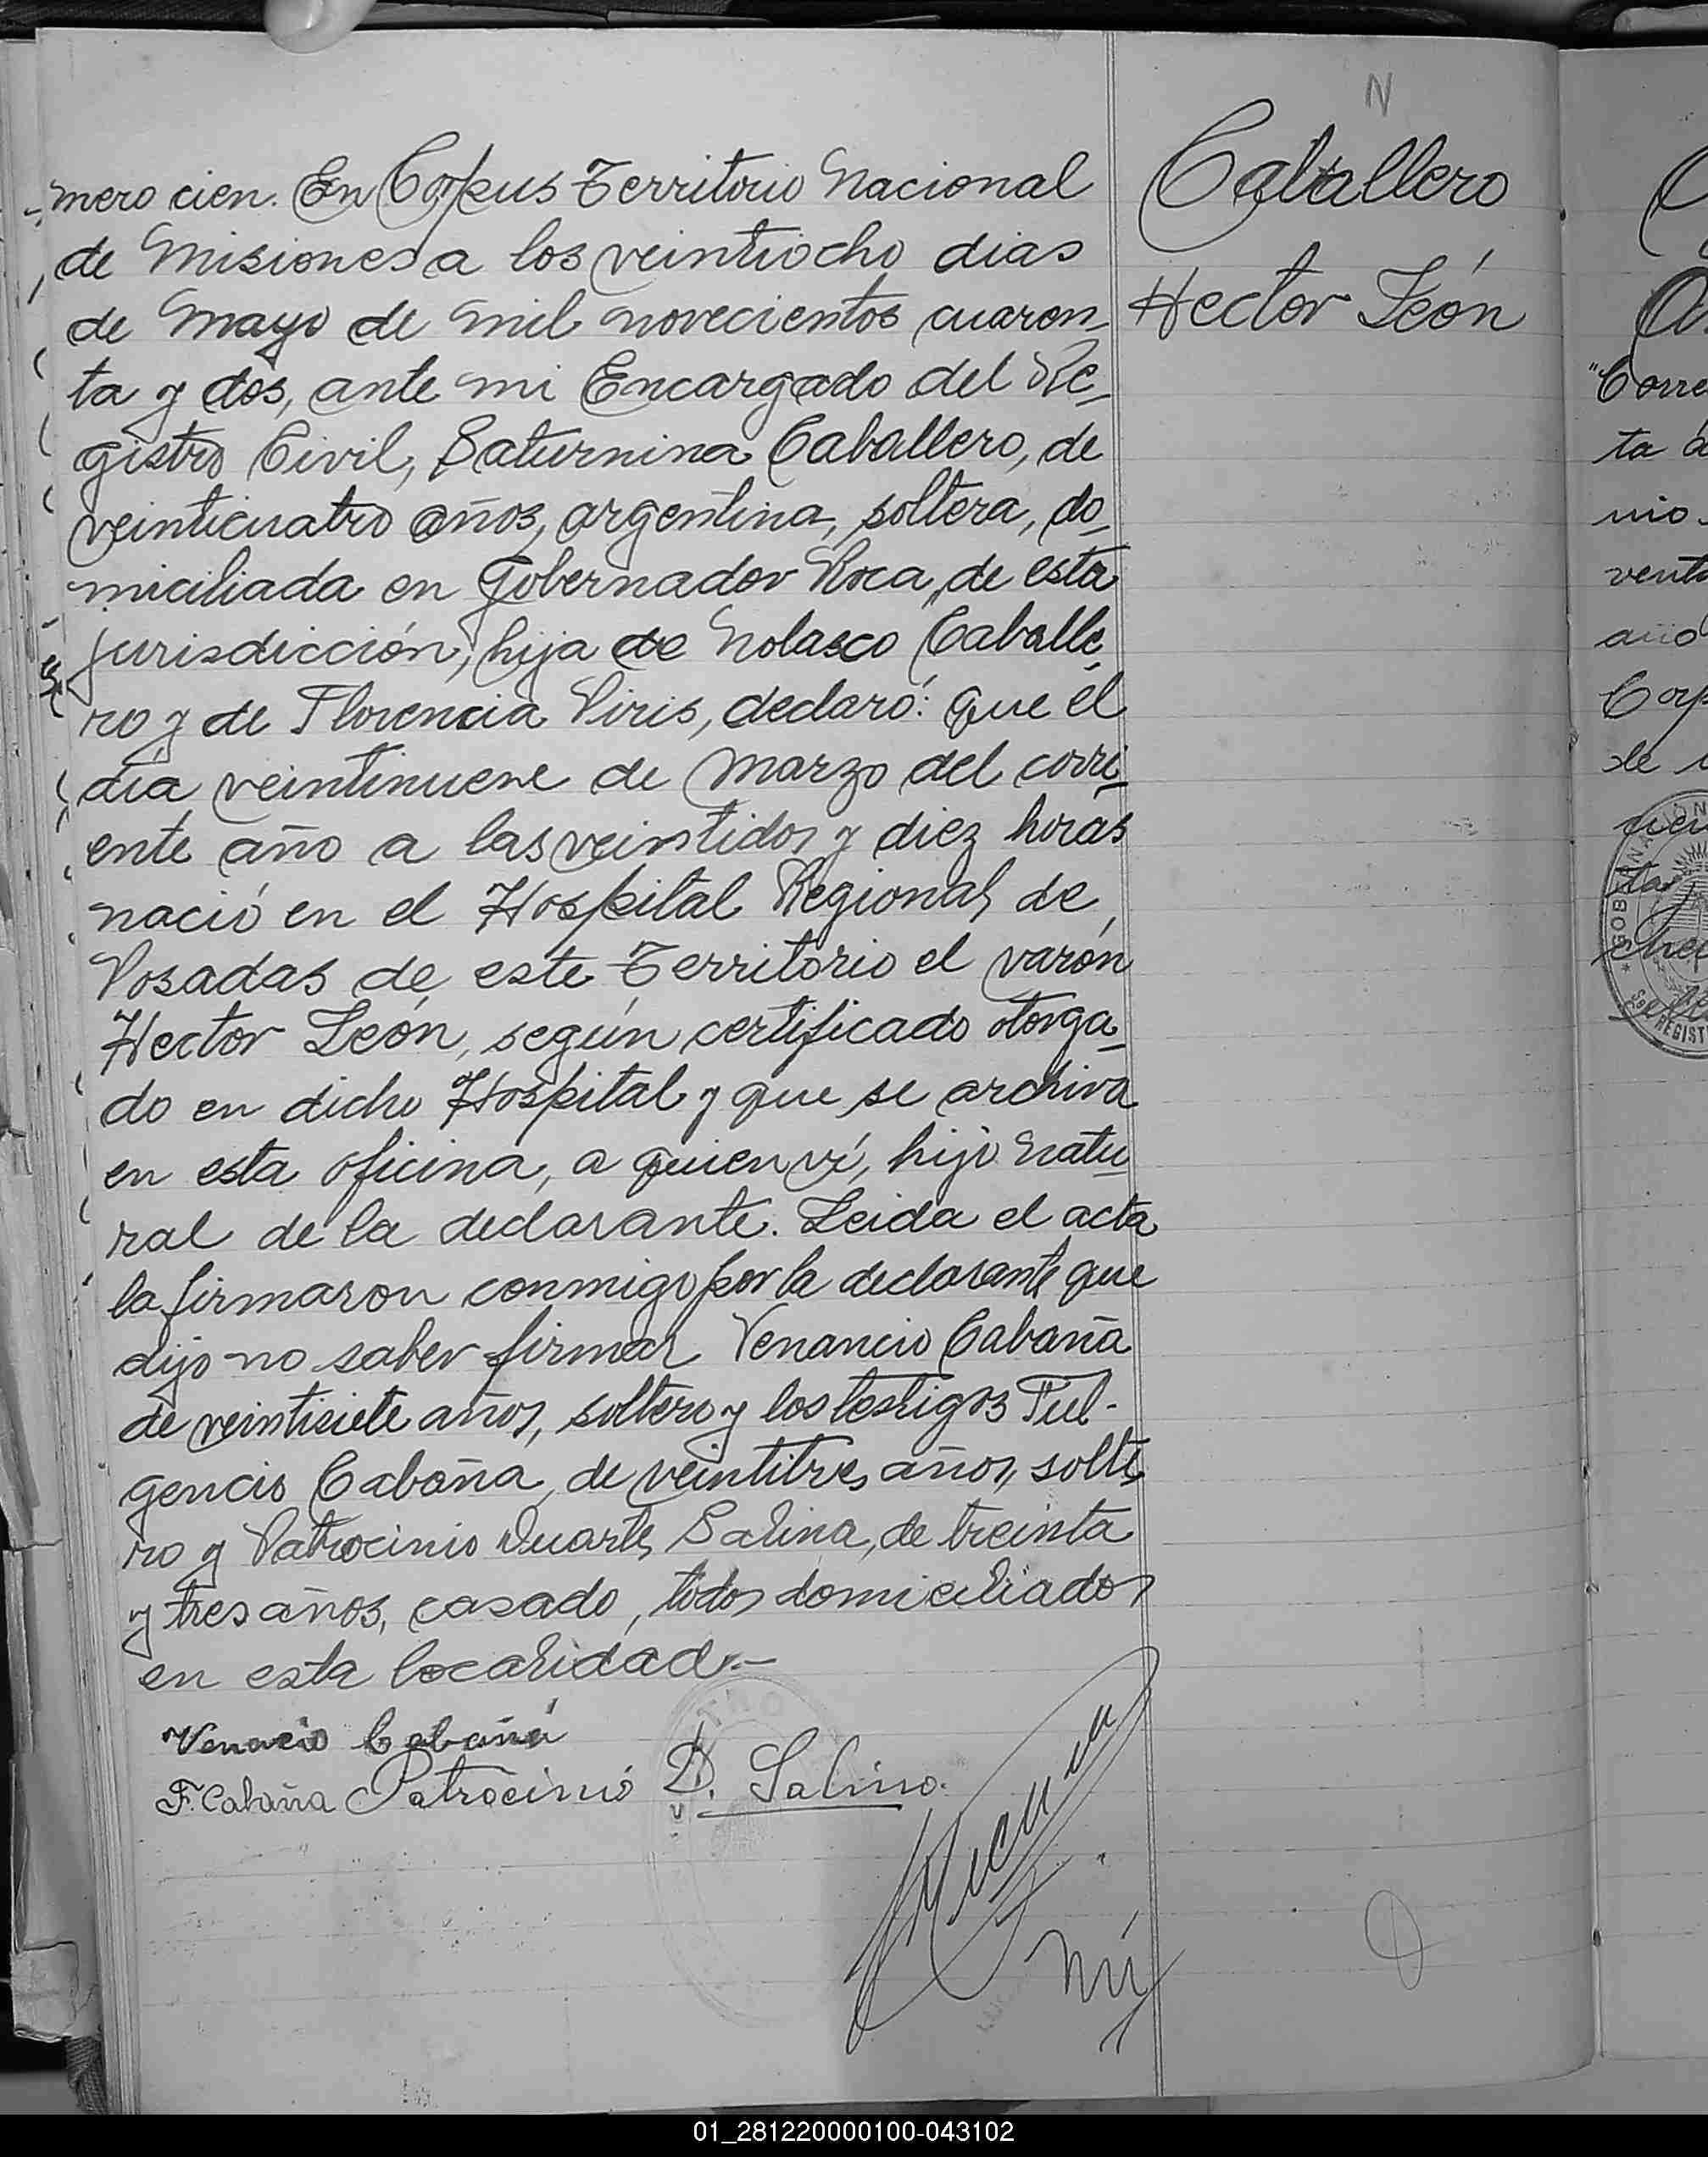 N
Caballero
Hector León
mero cien. En Corpus Territorio Nacional
de Misiones a los veintiocho dias
de Mayo de mil novecientos cuaren_
ta y dos, ante mi Encargado del Re_
gistro Civil, Saturnina Caballero, de
veinticuatro años, argentina, soltera, do_
miciliada en Gobernador Roca, de esta
jurisdicción, hija de Nolasco Caballe_
ro y de Florencia Piris, declaró: que el
día veintinueve de Marzo del corri_
ente año a las veintidos y diez horas
nació en el Hospital Regional de
Posadas de este Territorio el varón
Hector León, según certificado otorga_
do en dicho Hospital y que se archiva
en esta oficina, a quien ví, hijo natu_
ral de la declarante. Leida el acta
la firmaron conmigo por la declarante que
dijo no saber firmar Venancio Cabaña
de veintisiete años, soltero y los testigos Ful-
gencio Cabaña, de veintitres años, solte_
ro y Patrocinio Duarte Salina, de treinta
y tres años, casado, todos domiciliados
en esta localidad.-
Venacio Cabaña
F. Cabaña Patrocinio D. Salina.
"Corre
ta
nio.
venti
año
Corp
de
REGIST
01_281220000100-043102